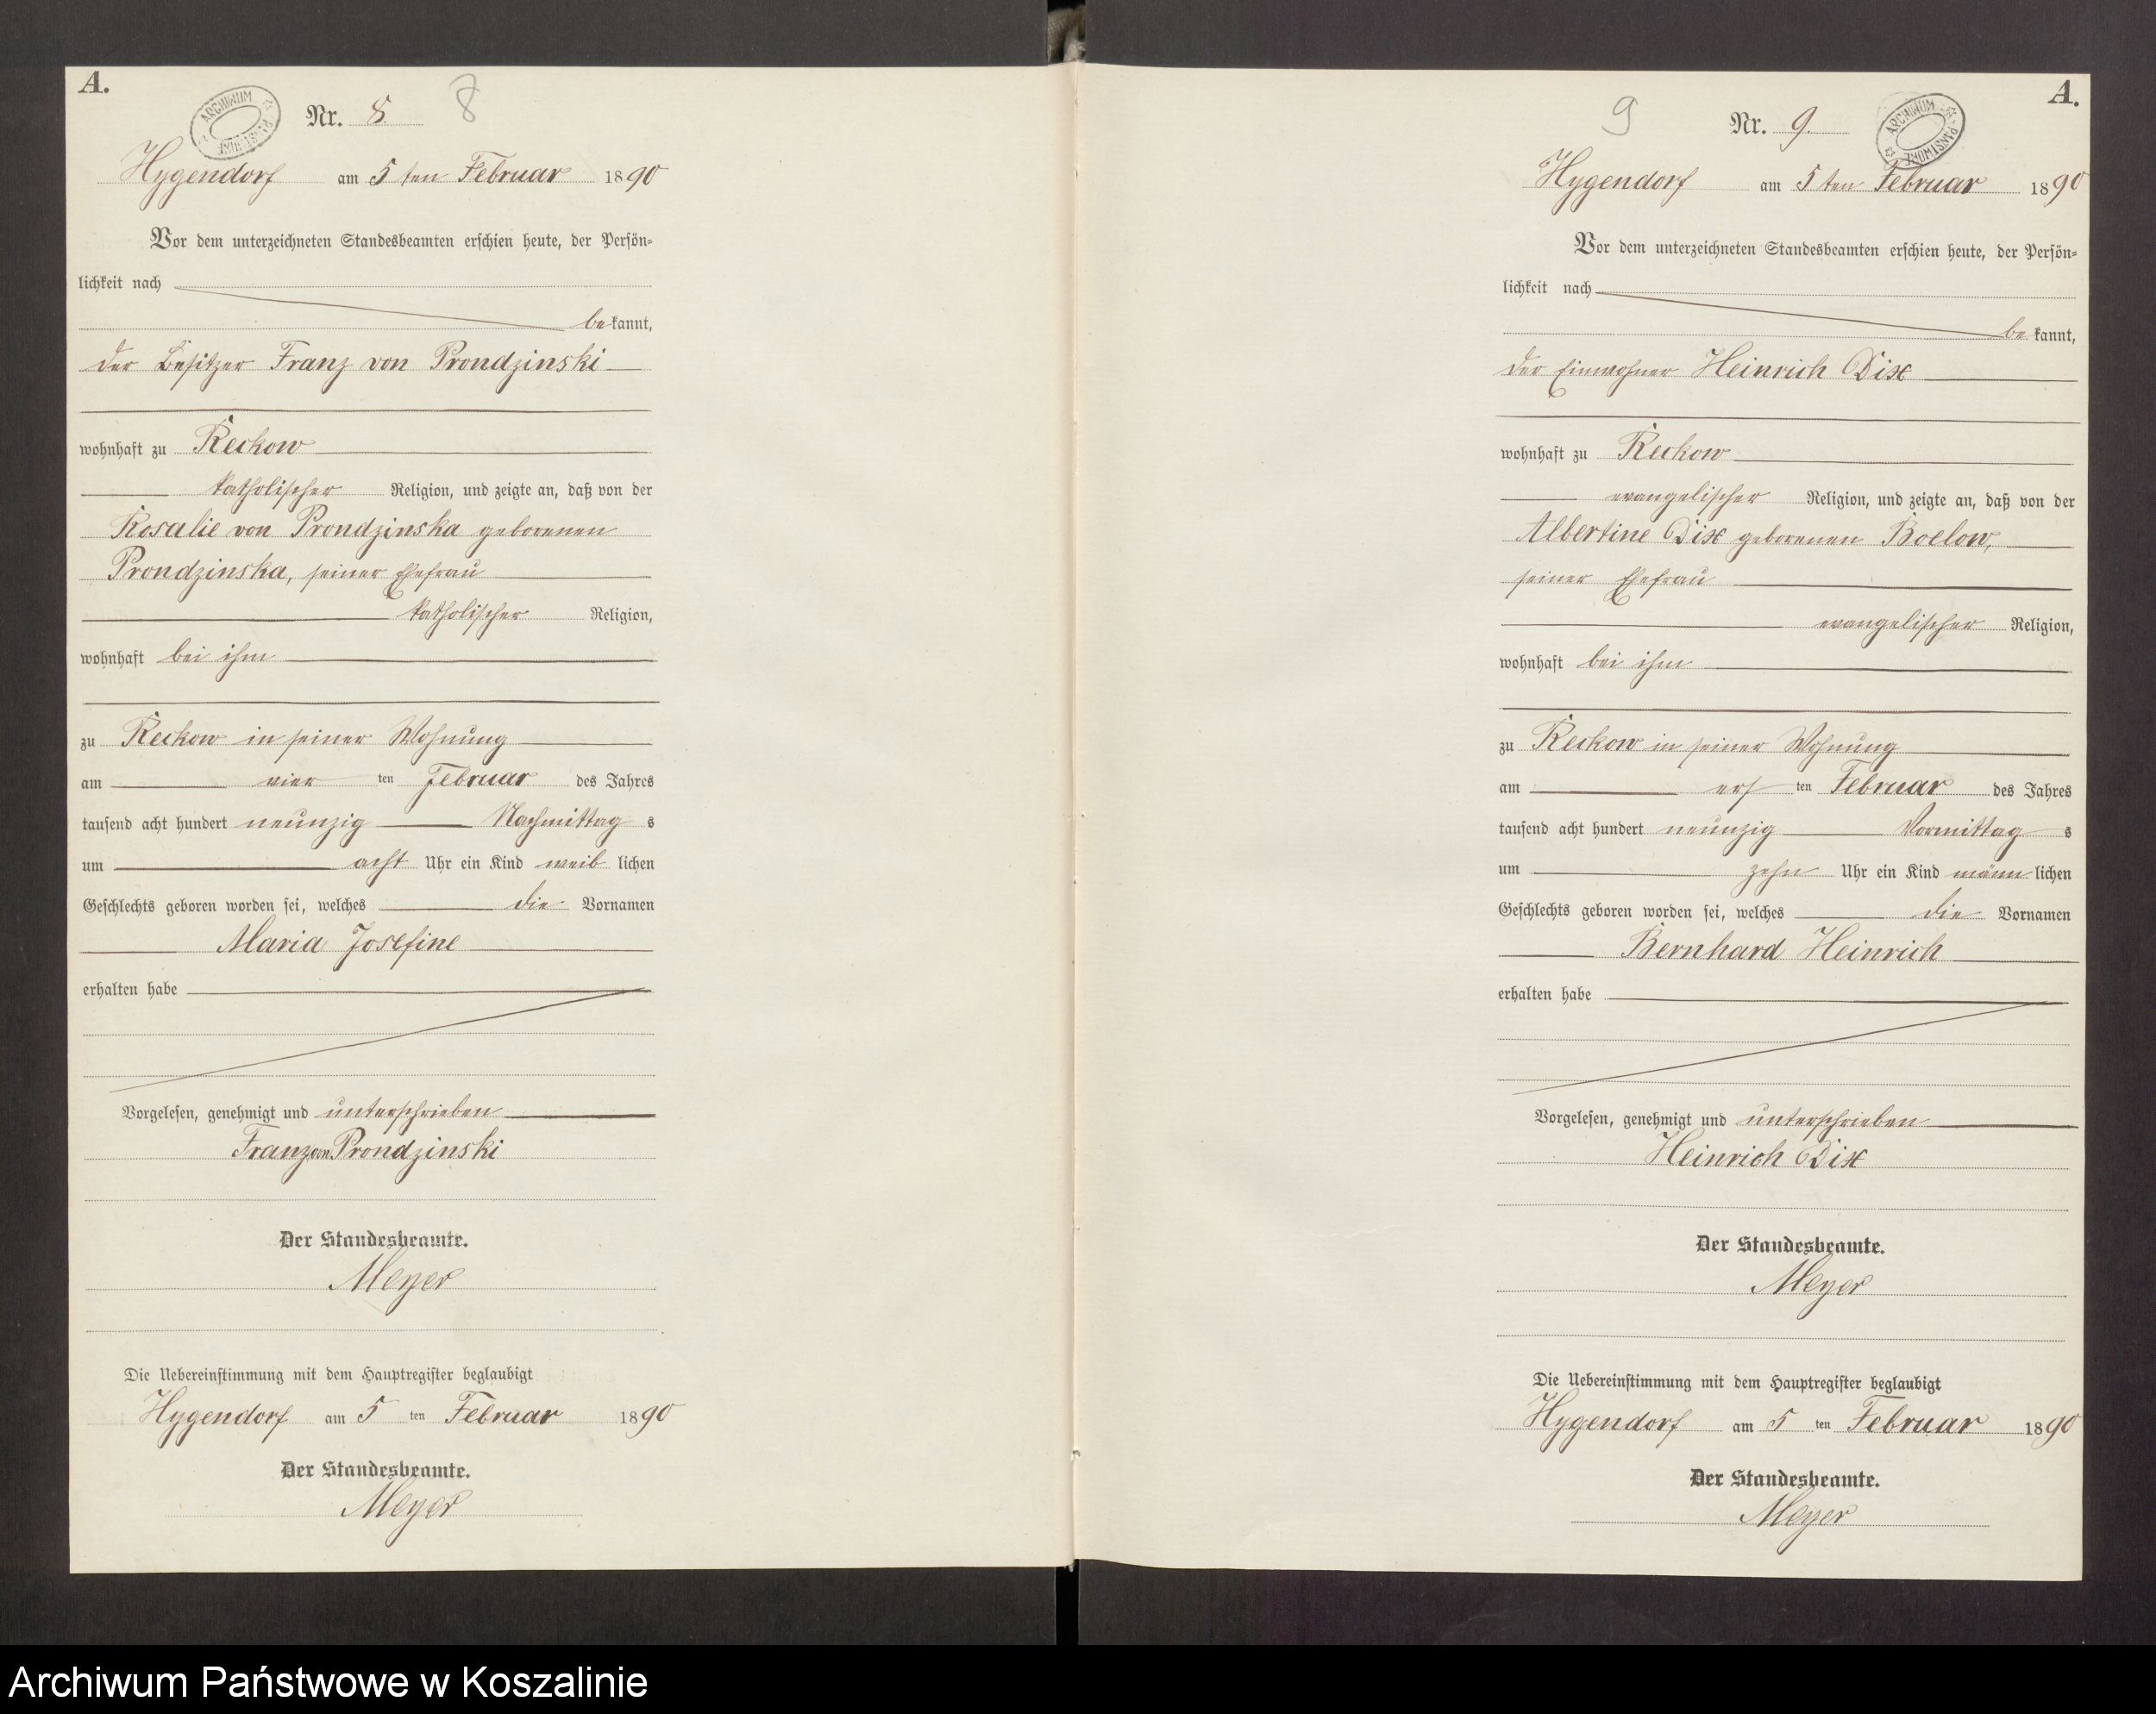 A.
ARCHIWUM PAŃSTWOWE
Nr. 8.
8
Hygendorf am 5ten Februar 1890
Vor dem unterzeichneten Standesbeamten erschien heute, der Persön-
lichkeit nach
bekannt,
der Besitzer Franz von Prondzinski
wohnhaft zu Reckow
katholischer Religion, und zeigte an, daß von der
Rosalie von Prondzinska geborenen
Prondzinska, seiner Ehefrau
katholischer Religion,
wohnhaft bei ihm
zu Reckow in seiner Wohnung
am vier ten Februar des Jahres
tausend acht hundert neunzig Nachmittag s
um acht Uhr ein Kind weib lichen
Geschlechts geboren worden sei, welches die Vornamen
Maria Josefine
erhalten habe
Vorgelesen, genehmigt und unterschrieben
Franz von Prondzinski
Der Standesbeamte.
Meyer
Die Uebereinstimmung mit dem Hauptregister beglaubigt
Hygendorf am 5 ten Februar 1890
Der Standesbeamte.
Meyer
A.
9
Nr. 9.
ARCHIWUM PAŃSTWOWE
Hygendorf am 5ten Februar 1890
Vor dem unterzeichneten Standesbeamten erschien heute, der Persön-
lichkeit nach
bekannt,
der Einwohner Heinrich Dix
wohnhaft zu Reckow
evangelischer Religion, und zeigte an, daß von der
Albertine Dix geborenen Boelow,
seiner Ehefrau
evangelischer Religion,
wohnhaft bei ihm
zu Reckow in seiner Wohnung
am ers ten Februar des Jahres
tausend acht hundert neunzig Vormittag s
um zehn Uhr ein Kind männ lichen
Geschlechts geboren worden sei, welches die Vornamen
Bernhard Heinrich
erhalten habe
Vorgelesen, genehmigt und unterschrieben
Heinrich Dix
Der Standesbeamte.
Meyer
Die Uebereinstimmung mit dem Hauptregister beglaubigt
Hygendorf am 5 ten Februar 1890
Der Standesbeamte.
Meyer
Archiwum Państwowe w Koszalinie